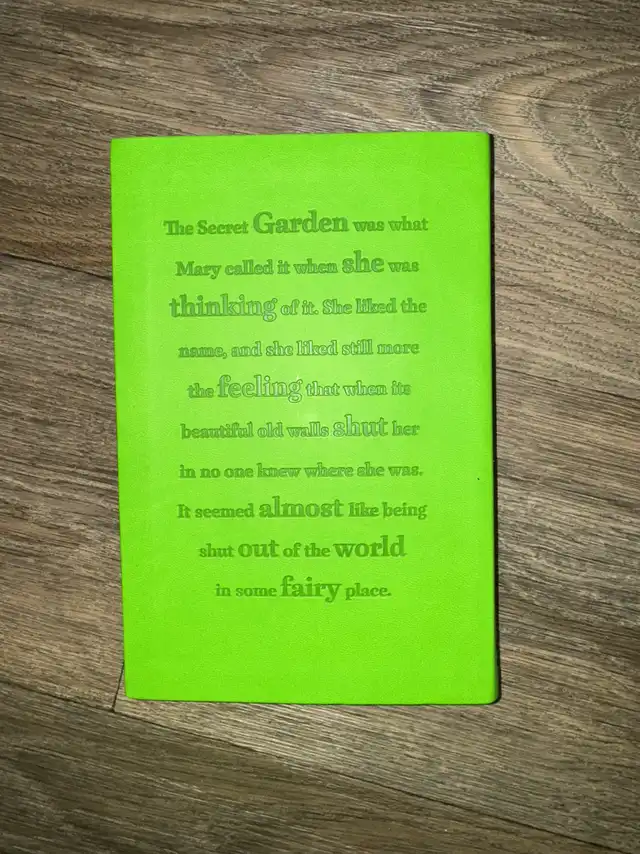 The Secret Garden was what
Mary called it when she was
thinking of it. She liked the
name, and she liked still more
the feeling that when its
beautiful old walls shut her
in no one knew where she was.
It seemed almost like being
shut out of the world
in some fairy place.